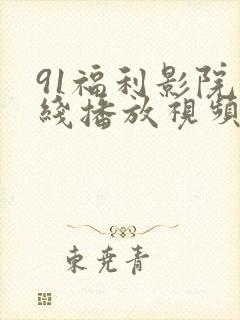 91福利影院
綫播放視頻
東堯青